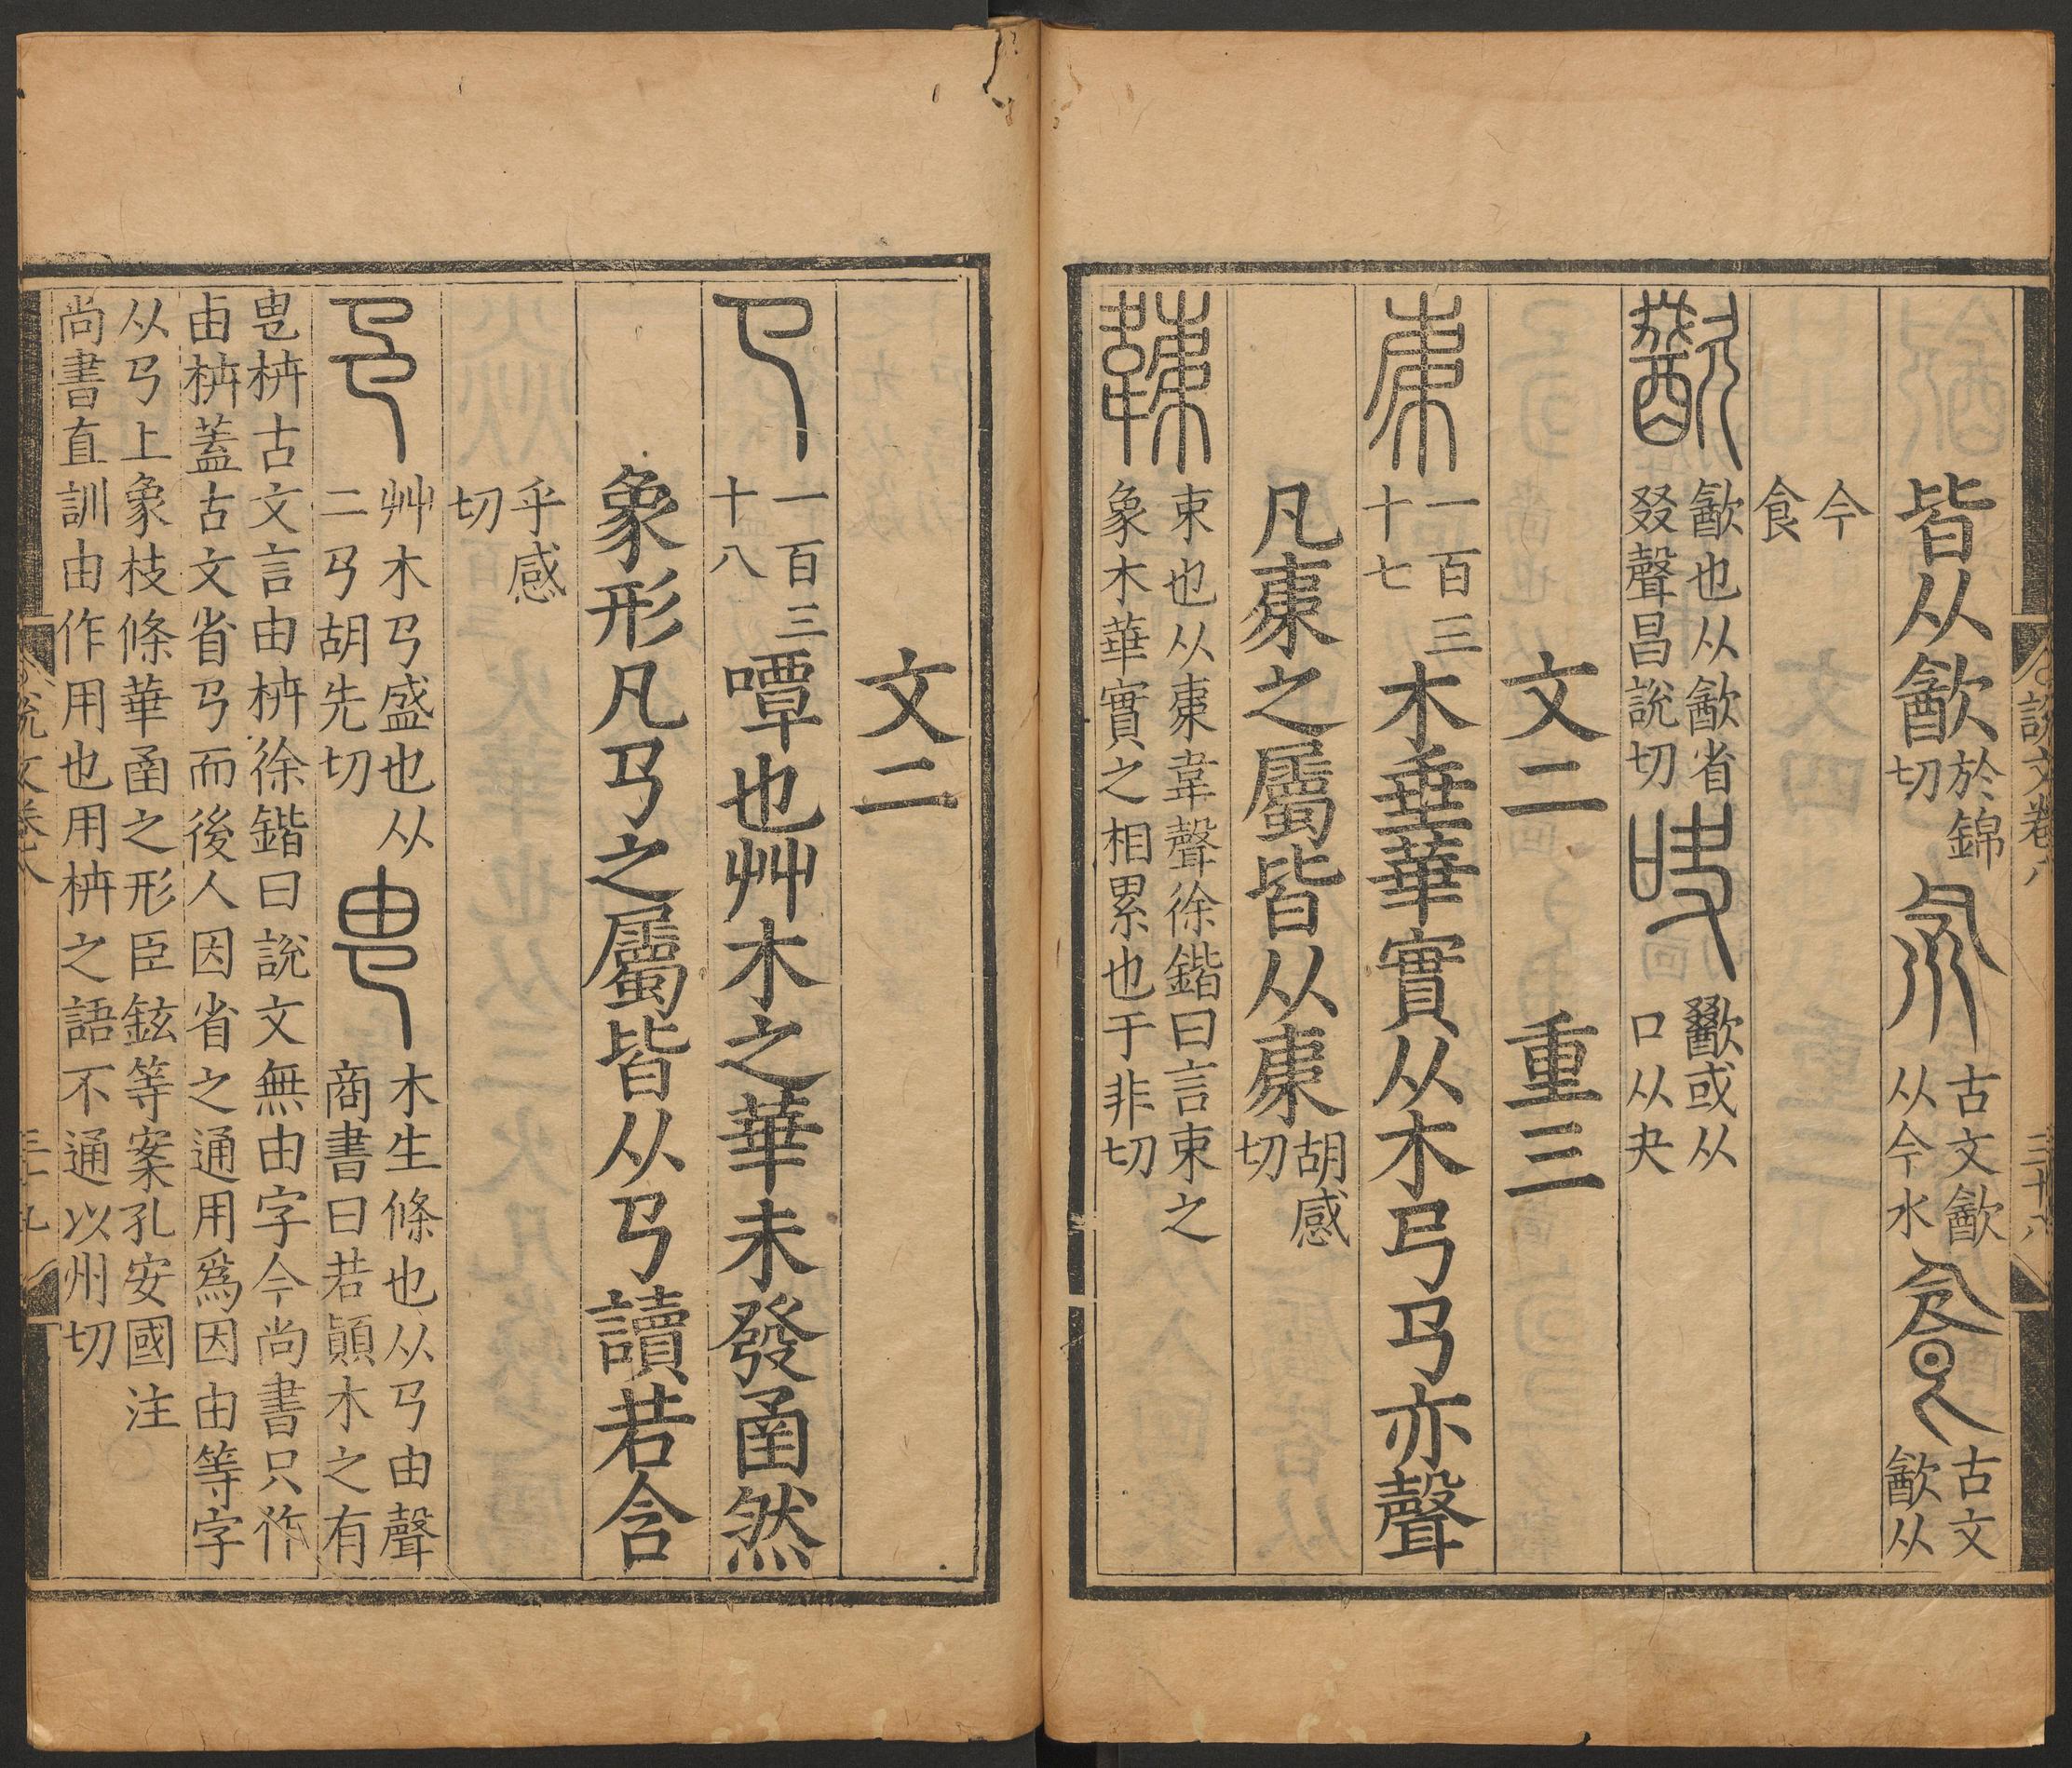 皆从㱃於錦切 古文㱃从今水 古文㱃从
今食
㱃也从㱃省叕聲昌說切 㱉或从口从夬
文二 重三
𣐺一百三十七木垂華實从木𢎘𢎘亦聲
凡𣐺之屬皆从𣐺胡感切
𣡌束也从𣐺韋聲徐鍇曰言束之象木華實之相累也于非切
說文卷八 三十八
文二
𢎘一百三十八嘾也艸木之華未發函然
象形凡𢎘之屬皆从𢎘讀若含
乎感切
艸木𢎘盛也从二𢎘胡先切 㽕木生條也从𢎘由聲商書曰若顛木之有
㽕枿古文言由枿徐鍇曰說文無由字今尚書只作
由枿蓋古文省𢎘而後人因省之通用爲因由等字
从𢎘上象枝條華函之形臣鉉等案孔安國注
尚書直訓由作用也用枿之語不通以州切
說文卷 三十九